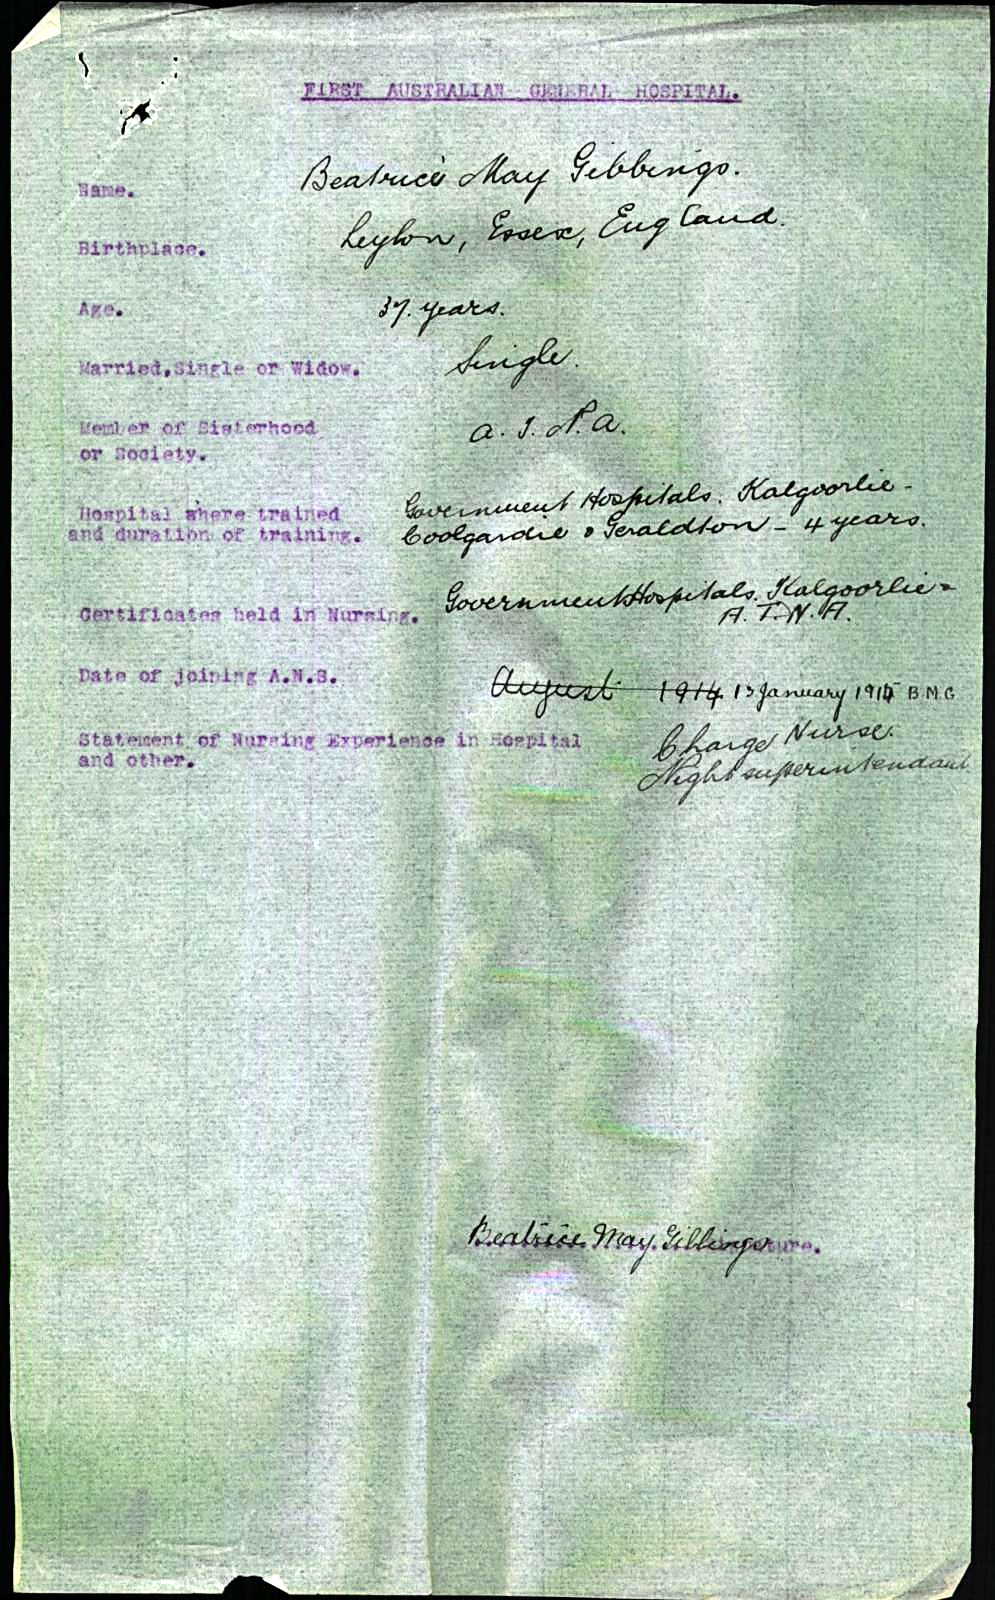 FIRST AUSTRALIAN GENERAL HOSPITAL.
Name. Beatrice May Gibbings.
Birthplace. Leyton, Essex, England.
Age. 37. years.
Married,Single or Widow. Single.
Member of Sisterhood
or Society. A. T. N. A.
Hospital where trained Government Hospitals. Kalgoorlie -
and duration of training. Coolgardie & Geraldton - 4 years.
Certificates held in Nursing. Government Hospitals. Kalgoorlie -
A. T. N. A.
Date of joining A.N.S. August 1914 13 January 1915 B M G
Statement of Nursing Experience in Hospital Charge Nurse.
and other. Night superintendant
Beatrice May. Gibbings